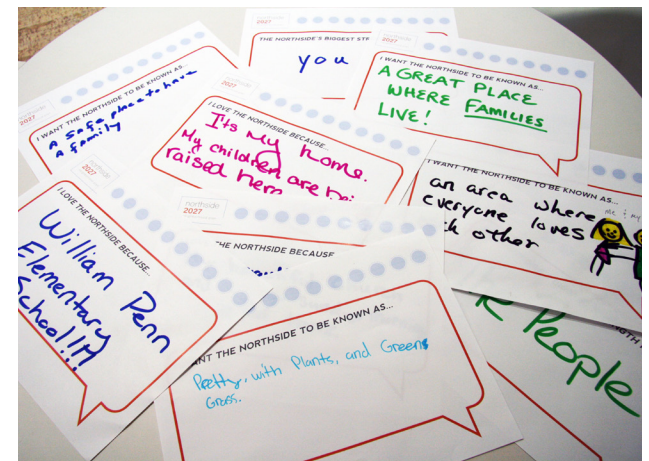 THE NORTHSIDE'S BIGGEST STR
you
I WANT THE NORTHSIDE TO BE KNOWN AS...
A GREAT PLACE
WHERE FAMILIES
LIVE!
2027
I WANT THE NORTHSIDE TO BE KNOWN AS...
a safe place to have
a family
northside
2027
I LOVE THE NORTHSIDE BECAUSE...
It's My home.
My children are bei
raised here
I WANT THE NORTHSIDE TO BE KNOWN AS...
an area where
everyone loves
ch other
me & my
I LOVE THE NORTHSIDE BECAUSE...
William Penn
Elementary
School!!!!
northside
2027
HE NORTHSIDE BECAUSE
ANT THE NORTHSIDE TO BE KNOWN AS...
Pretty, with Plants, and Greens
Grass.
NGTH
R People